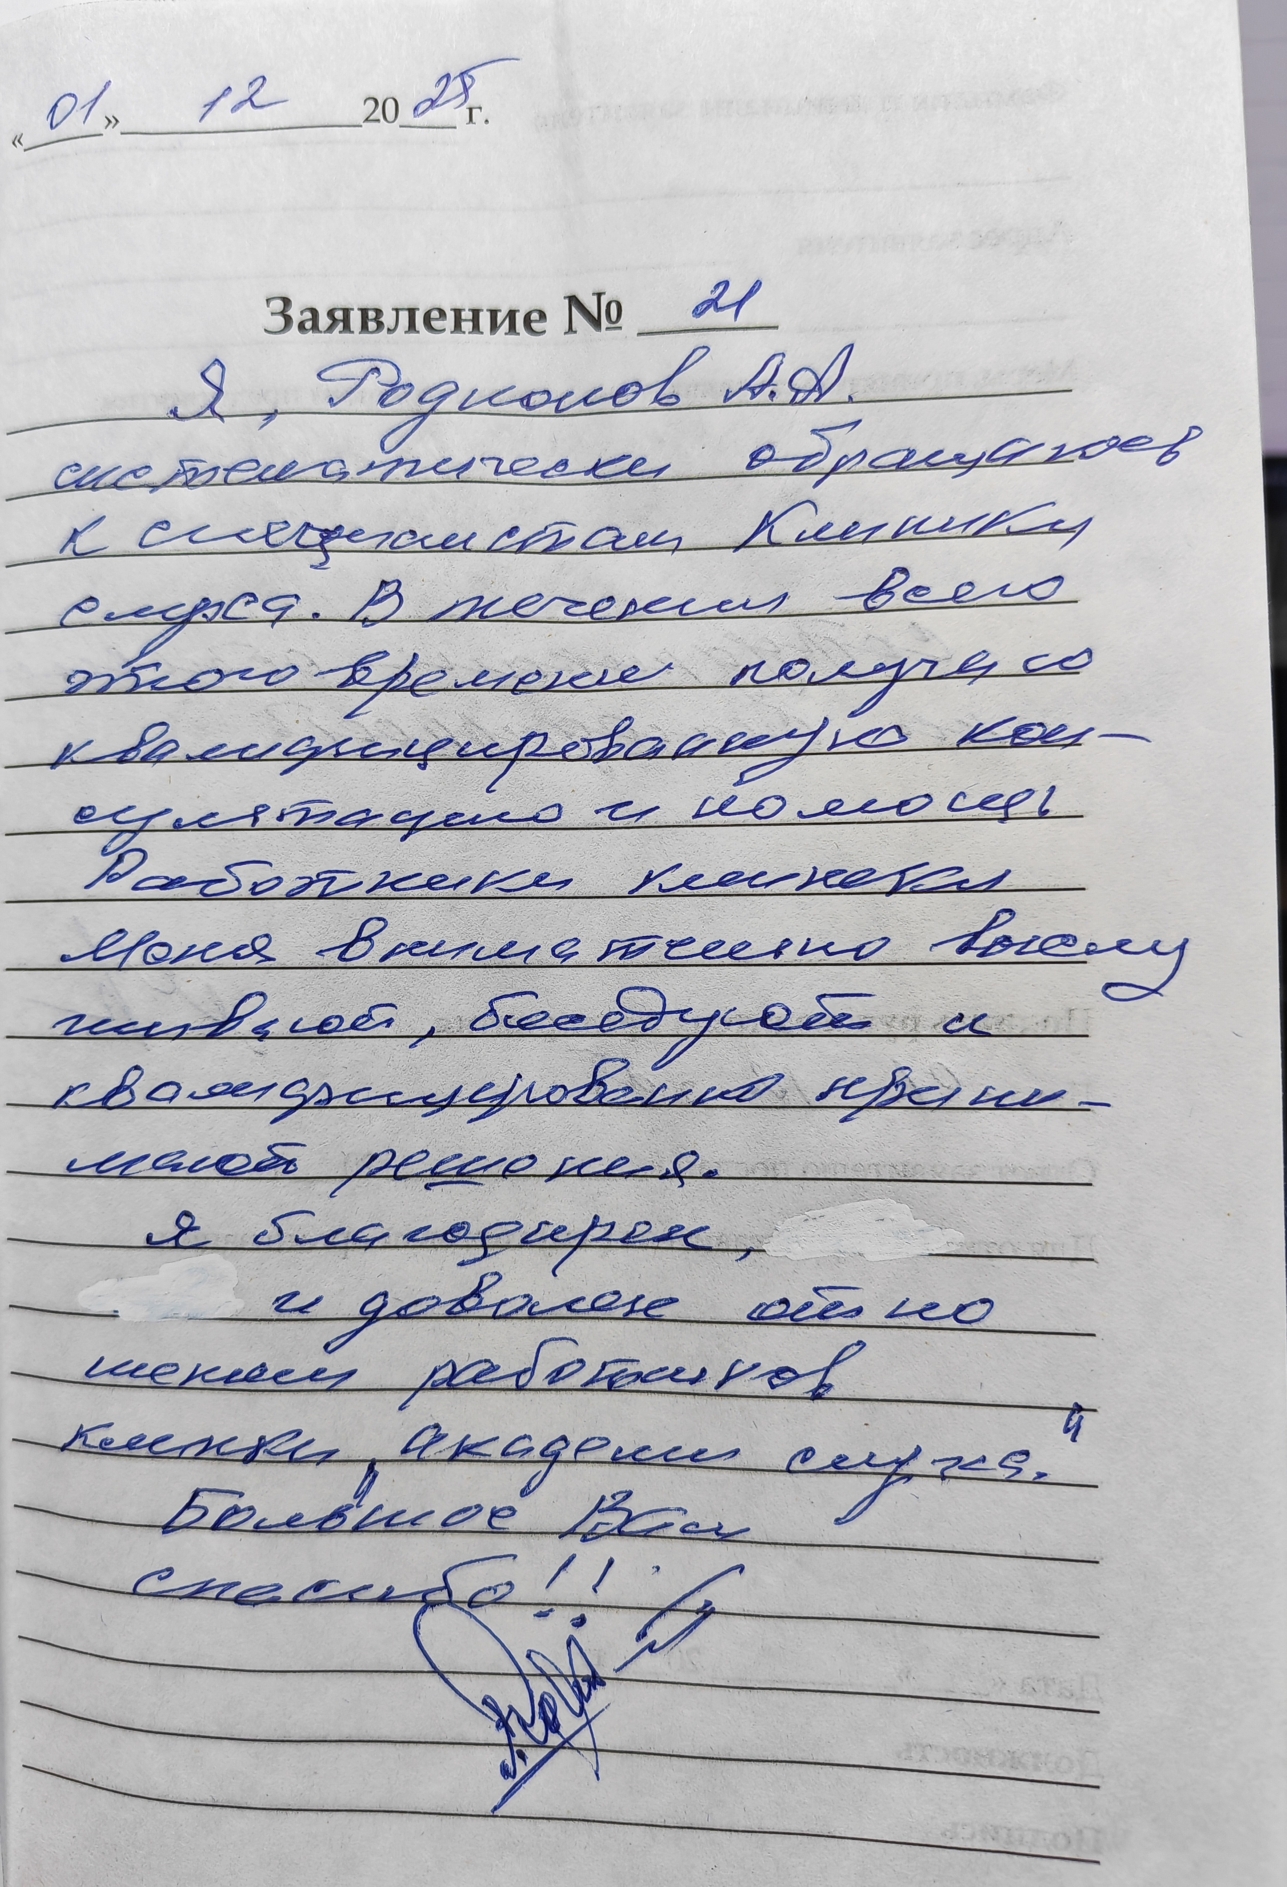 «01» 12 2025 г.
Заявление № 21
Я, Родионов А.А.
систематически обращаюсь
к специалистам Клиники
слуха. В течении всего
этого времени получаю
квалифицированную кон-
сультацию и помощь
Работники клиники
меня внимательно выслу
шивают, беседуют и
квалифицировано прини-
мают решения.
Я благодарен,
и доволен отно
шением работников
клиники „Академи слуха."
Большое Вам
спасибо!!